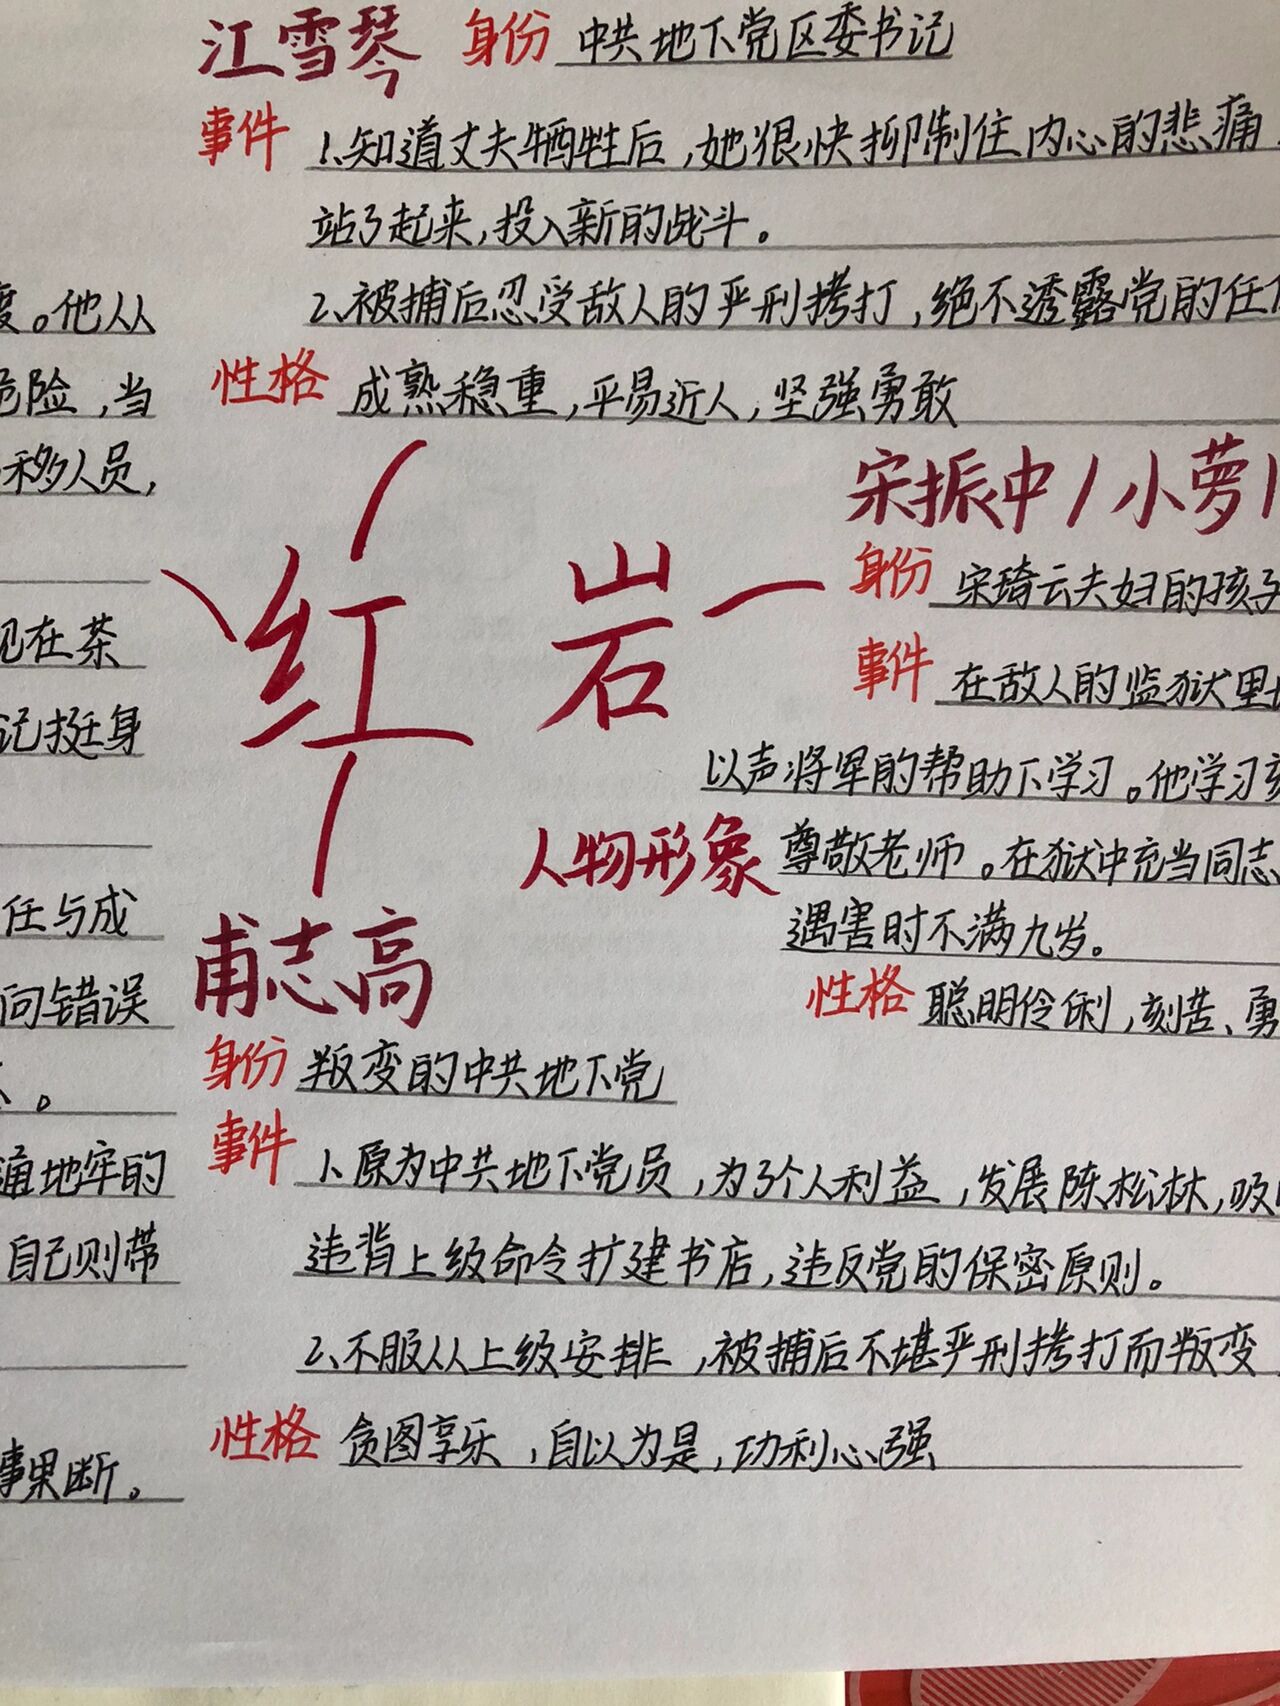 江雪琴 身份 中共地下党区委书记
事件 1、知道丈夫牺牲后,她很快抑制住内心的悲痛,
站了起来,投入新的战斗。
2、被捕后忍受敌人的严刑拷打,绝不透露党的任
性格 成熟稳重,平易近人,坚强勇敢
度。他从
危险,当
移人员,
在茶
记挺身
任与成
问错误
。
通地牢的
自己则带
事果断。
红岩
人物形象
宋振中/小萝
身份 宋琦云夫妇的孩子
事件 在敌人的监狱里
以声将军的帮助下学习。他学习刻
尊敬老师。在狱中充当同志
遇害时不满九岁。
性格 聪明伶俐,刻苦、勇
甫志高
身份 叛变的中共地下党
事件 1、原为中共地下党员,为了个人利益,发展陈松林,吸
违背上级命令扩建书店,违反党的保密原则。
2、不服从上级安排,被捕后不堪严刑拷打而叛变,
性格 贪图享乐,自以为是,功利心强